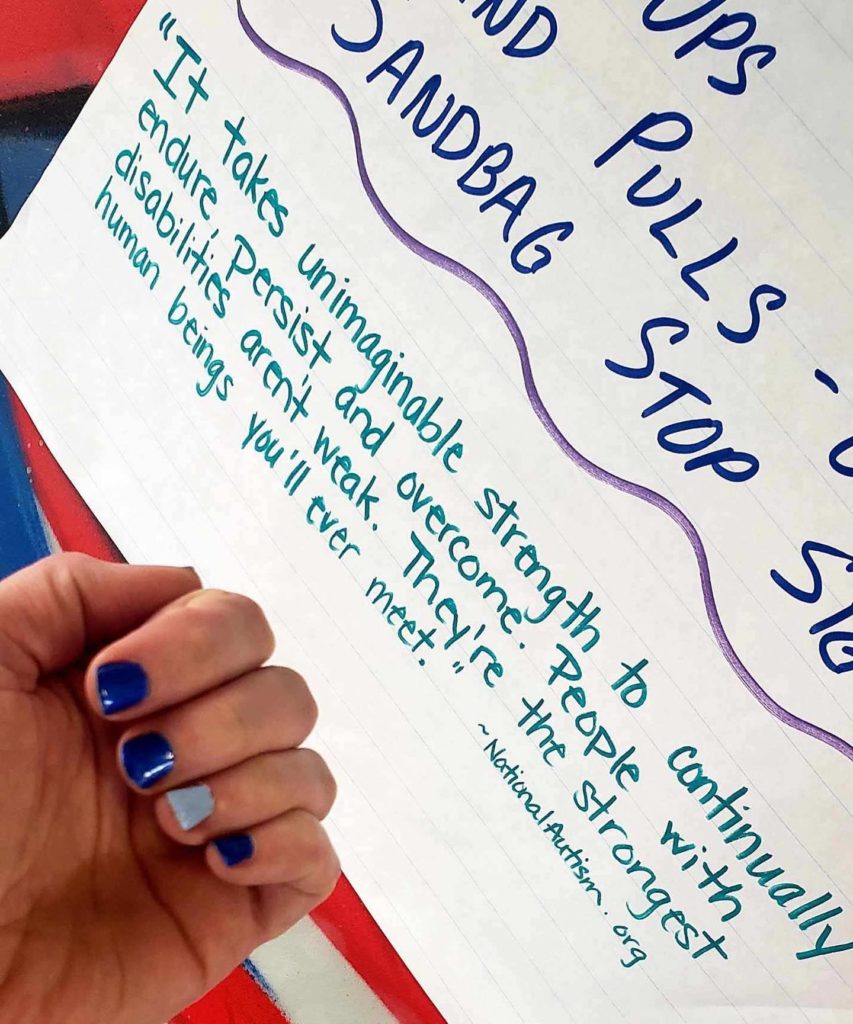 UPS
PULLS -
SANDBAG
STOP
SIG
"It takes unimaginable strength to continually
endure, persist and overcome. People with
disabilities aren't weak. They're the strongest
human beings you'll ever meet."
~NationalAutism.org